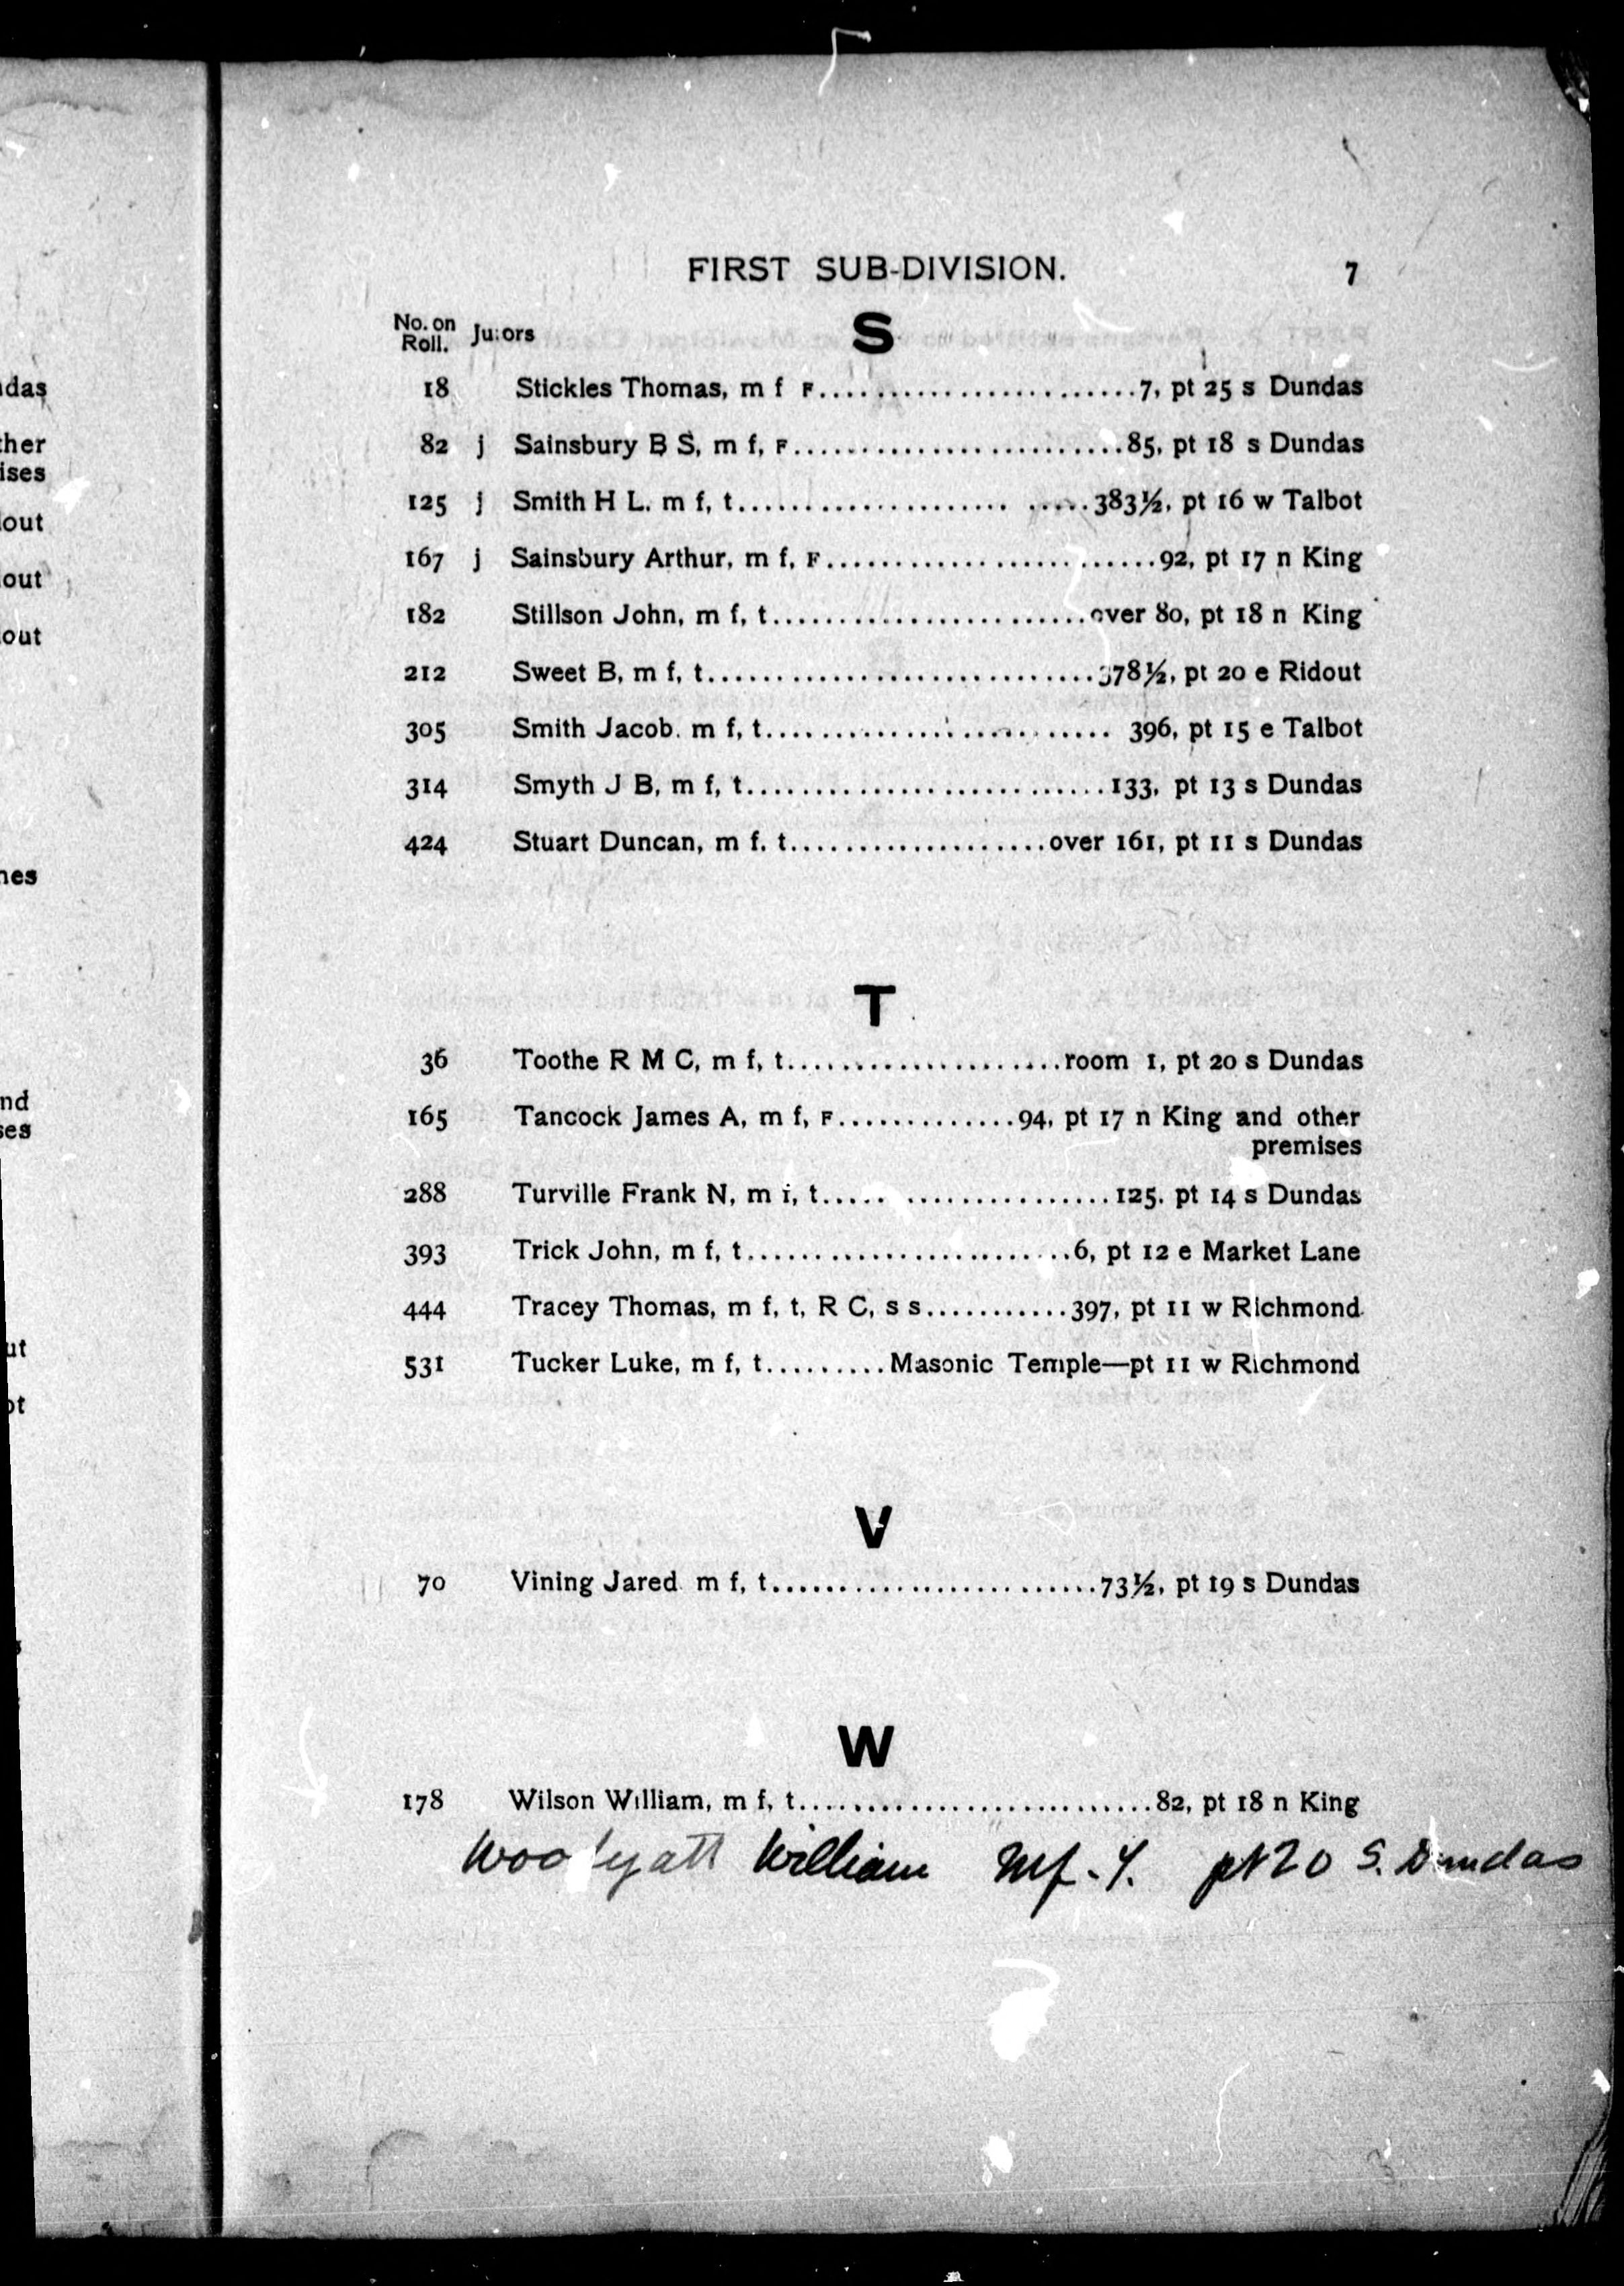 das
ther
ises
out
out
out
nes
nd
ses
ut
ot
FIRST SUB-DIVISION. 7
No. on Roll. Jurors
S
18 Stickles Thomas, m f F........................7, pt 25 s Dundas
82 j Sainsbury B S, m f, F.........................85, pt 18 s Dundas
125 j Smith H L. m f, t.................... .....383½, pt 16 w Talbot
167 j Sainsbury Arthur, m f, F.........................92, pt 17 n King
182 Stillson John, m f, t........................over 80, pt 18 n King
212 Sweet B, m f, t.............................378½, pt 20 e Ridout
305 Smith Jacob. m f, t.......................... 396, pt 15 e Talbot
314 Smyth J B, m f, t...........................133, pt 13 s Dundas
424 Stuart Duncan, m f. t...................over 161, pt 11 s Dundas
T
36 Toothe R M C, m f, t.....................room 1, pt 20 s Dundas
165 Tancock James A, m f, F.............94, pt 17 n King and other
premises
288 Turville Frank N, m f, t..... ................125. pt 14 s Dundas
393 Trick John, m f, t.........................6, pt 12 e Market Lane
444 Tracey Thomas, m f, t, R C, s s...........397, pt 11 w Richmond
531 Tucker Luke, m f, t.........Masonic Temple—pt 11 w Richmond
V
70 Vining Jared m f, t.........................73½, pt 19 s Dundas
W
178 Wilson William, m f, t...........................82, pt 18 n King
Woodyatt William Mf.-Y. pt 20 S. Dundas